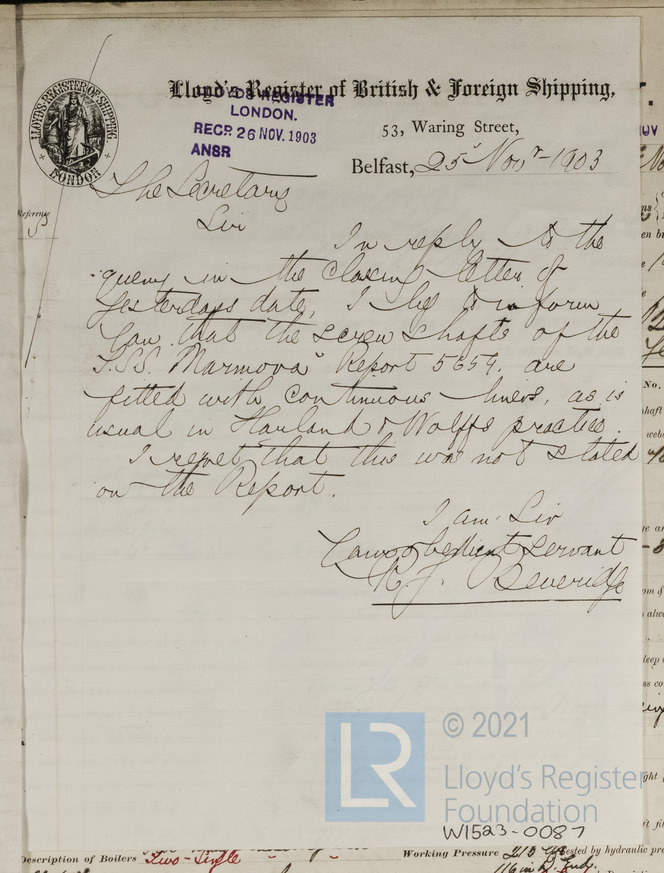 Lloyd's Register of British & Foreign Shipping,
LLOYD'S REGISTER OF SHIPPING
LONDON
LLOYDS REGISTER
LONDON.
RECP. 26 NOV. 1903
ANSR
53, Waring Street,
Belfast, 25th Novr 1903
Reference
The Secretary
Sir
In reply to the
query in the closing letter of
yesterdays date, I beg to inform
you that the screw shafts of the
T.S.S. "Marmora" Report 5654. are
fitted with continuous liners, as is
usual in Harland & Wolffs practice.
I regret that this was not stated
on the Report.
I am Sir
Your obedient Servant
R. J. Beveridge
LR
© 2021
Lloyd's Register
Foundation
W1523-0087
Description of Boilers Two-Single
Working Pressure 215
Tested by hydraulic pre
No.